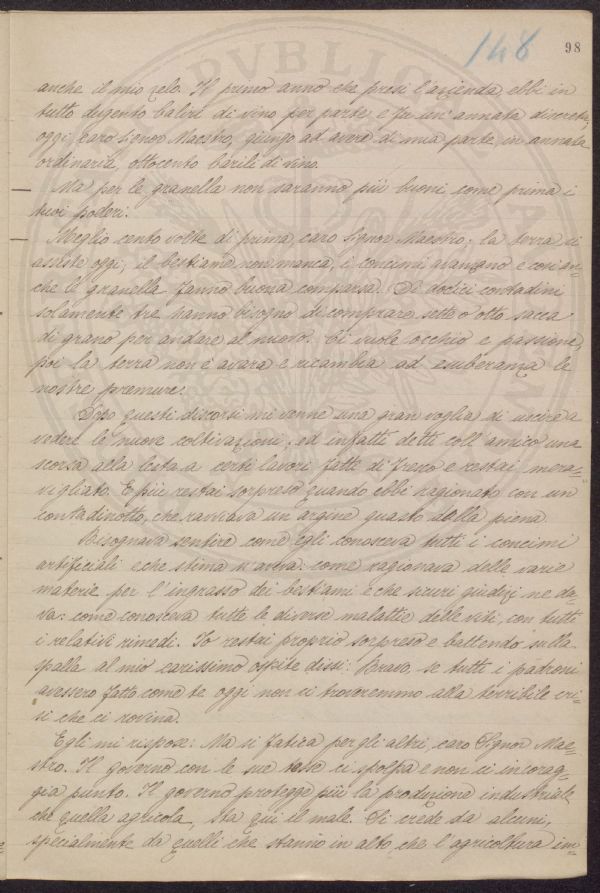 148
98
anche il mio zelo. Il primo anno che presi l'azienda ebbi in
tutto dugento barili di vino per parte e fu un'annata discreta,
oggi, caro Signor Maestro, giungo ad avere di mia parte, in annata
ordinaria, ottocento barili di vino.
Ma per le granella non saranno più buoni come prima i
tuoi poderi.
Meglio cento volte di prima, caro Signor Maestro; la terra si
assiste oggi, il bestiame non manca, i concimi avanzano e così an=
che le granella fanno buona comparsa. Di dodici contadini
solamente tre hanno bisogno di comprare sette o otto sacca
di grano per andare al nuovo. Ci vuole occhio e passione,
poi la terra non è avara e ricambia ad esuberanza le
nostre premure.
Dopo questi discorsi mi venne una gran voglia di uscire a
vedere le nuove coltivazioni, ed infatti detti coll'amico una
scorsa alla lesta a certi lavori fatti di fresco e restai mera=
vigliato. E più restai sorpreso quando ebbi ragionato con un
contadinotto, che ravviava un argine guasto dalla piena.
Bisognava sentire come egli conosceva tutti i concimi
artificiali e che stima n'aveva: come ragionava delle varie
materie per l'ingrasso dei bestiami e che sicuri giudizi ne da=
va: come conosceva tutte le diverse malattie delle viti, con tutti
i relativi rimedi. Io restai proprio sorpreso e battendo sulla
spalla al mio carissimo ospite dissi: Bravo, se tutti i padroni
avessero fatto come te oggi non ci troveremmo alla terribile cri=
si che ci rovina.
Egli mi rispose: Ma si fatica per gli altri, caro Signor Mae=
stro. Il governo con le sue tasse ci spolpa e non ci incorag=
gia punto. Il governo protegge più la produzione industriale
che quella agricola, sta qui il male. Si crede da alcuni,
specialmente da quelli che stanno in alto, che l'agricoltura im=